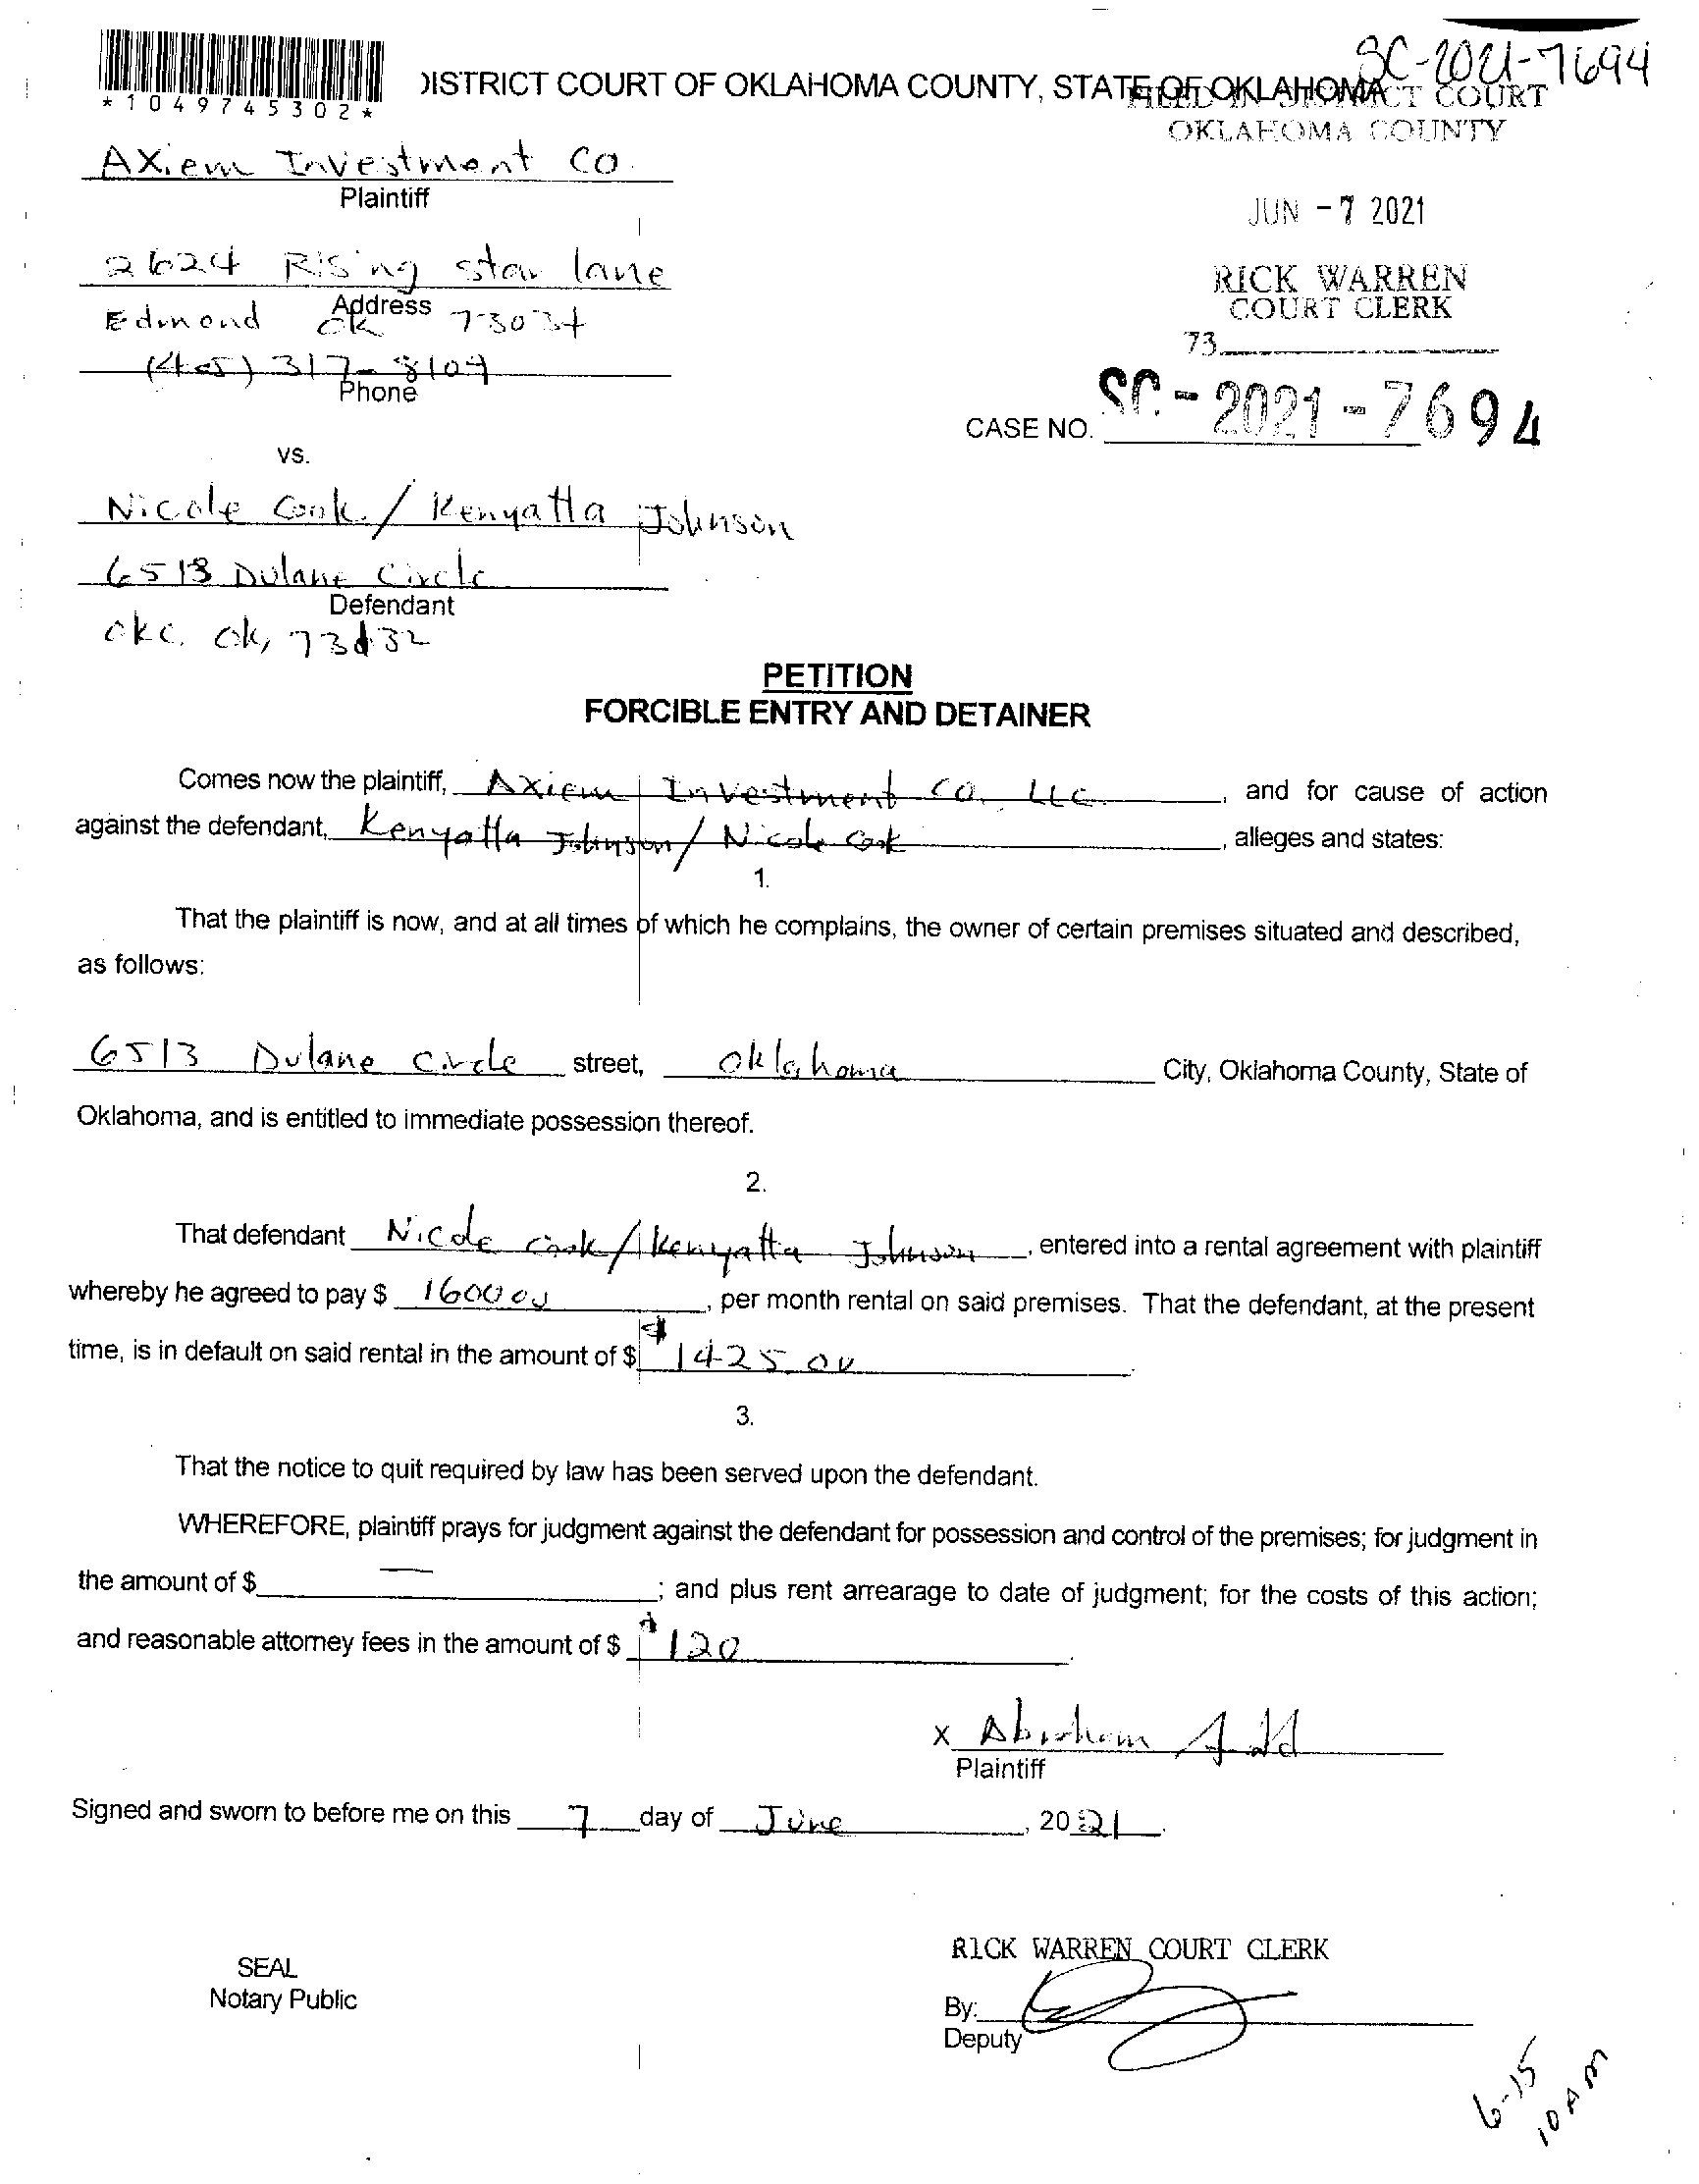 SC-2021-7694
*1049745302*
DISTRICT COURT OF OKLAHOMA COUNTY, STATE OF OKLAHOMA
FILED IN DISTRICT COURT
OKLAHOMA COUNTY
Axiem Investment Co.
Plaintiff
JUN -7 2021
2624 Rising star lane
Address
RICK WARREN
COURT CLERK
Edmond OK 73034
73
(405) 317-8109
Phone
CASE NO. SC-2021-7694
vs.
Nicole Cook / Kenyatta Johnson
6513 Dulane Circle
Defendant
okc. ok, 73132
PETITION
FORCIBLE ENTRY AND DETAINER
Comes now the plaintiff, Axiem Investment Co. LLC, and for cause of action
against the defendant, Kenyatta Johnson / Nicole Cook, alleges and states:
1.
That the plaintiff is now, and at all times of which he complains, the owner of certain premises situated and described,
as follows:
6513 Dulane Circle street, Oklahoma City, Oklahoma County, State of
Oklahoma, and is entitled to immediate possession thereof.
2.
That defendant Nicole Cook / Kenyatta Johnson, entered into a rental agreement with plaintiff
whereby he agreed to pay $ 1600 00, per month rental on said premises. That the defendant, at the present
time, is in default on said rental in the amount of $ $1425.00
3.
That the notice to quit required by law has been served upon the defendant.
WHEREFORE, plaintiff prays for judgment against the defendant for possession and control of the premises; for judgment in
the amount of $ —; and plus rent arrearage to date of judgment; for the costs of this action;
and reasonable attorney fees in the amount of $ $120.
X Abraham
Plaintiff
Signed and sworn to before me on this 7 day of June, 2021.
SEAL
Notary Public
RICK WARREN COURT CLERK
By:
Deputy
6-15
10 AM